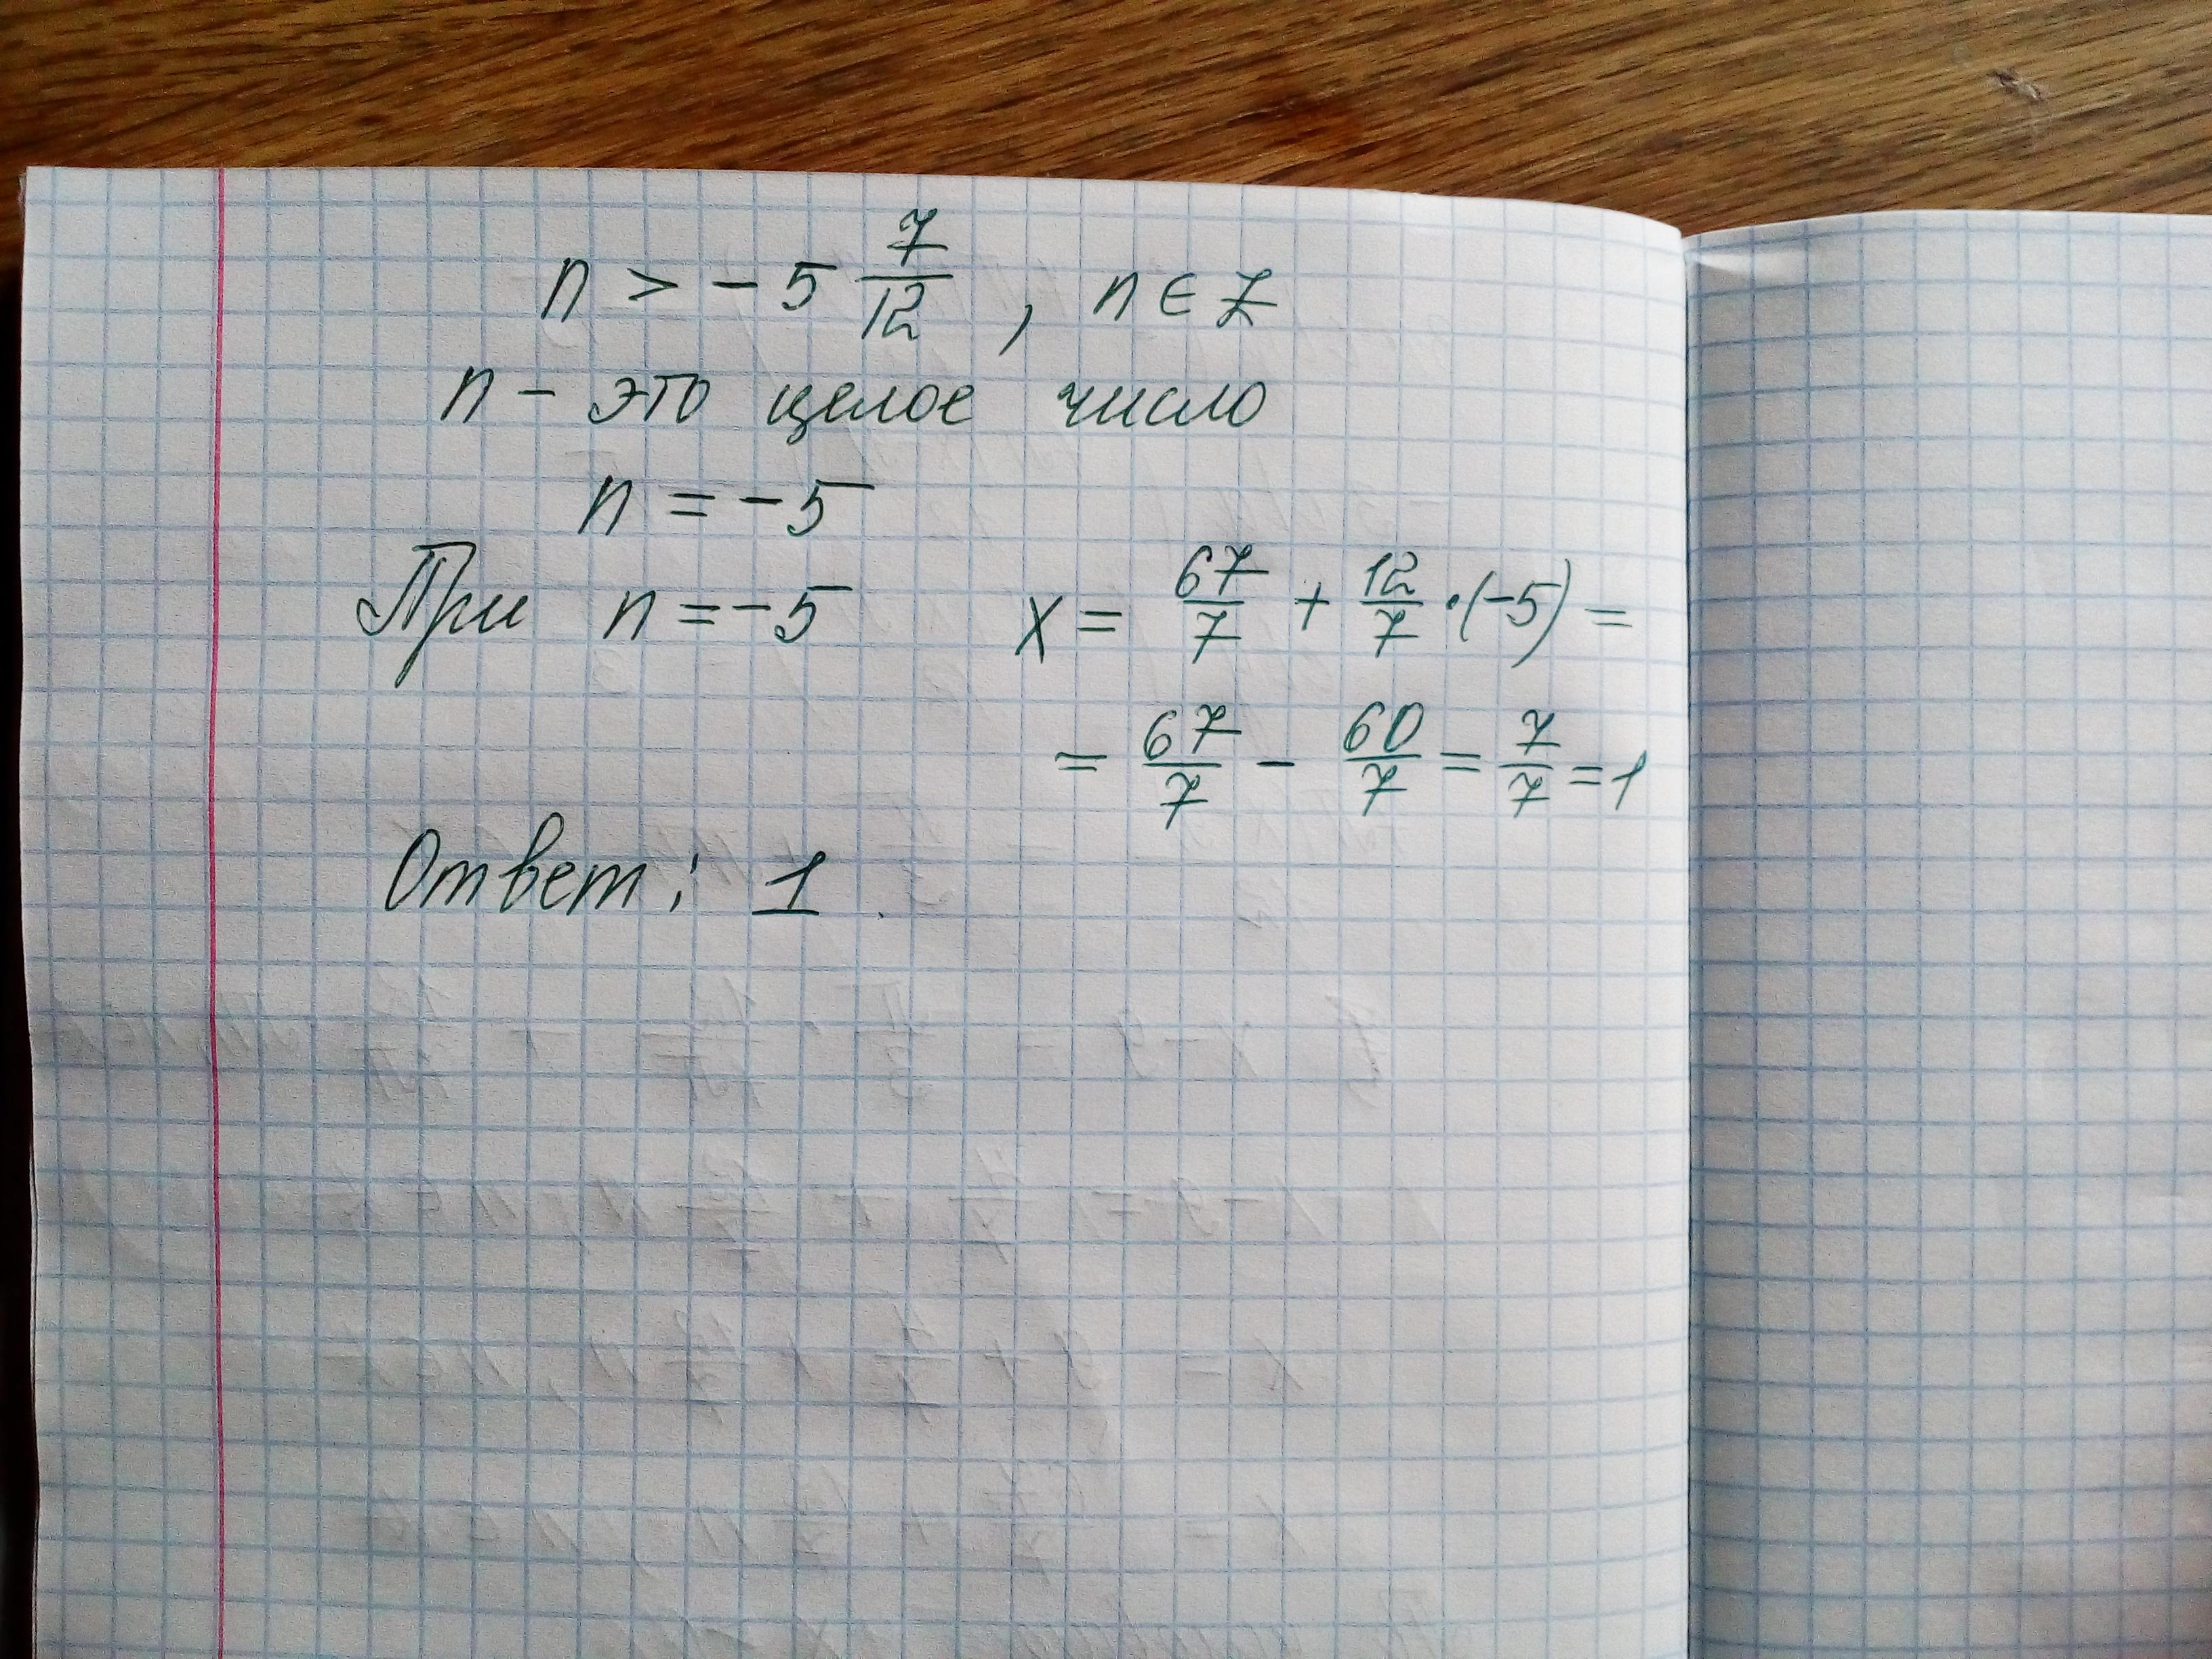 n > -5 7/12 , n ∈ Z
n - это целое число
n = -5
При n = -5 x = 67/7 + 12/7 · (-5) =
= 67/7 - 60/7 = 7/7 = 1
Ответ: 1.